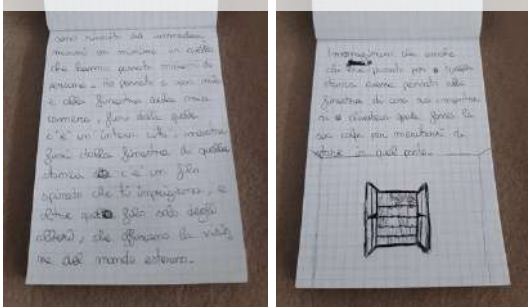 sono riuscito ad immedesi
marmi un minimo in quello
che hanno provato milioni di
persone. Ho pensato a casa mia
e alla finestra della mia
camera, fuori dalla quale
c'è un intera città, mentre
fuori dalla finestra di quella
stanza c'è un filo
spinato che ti imprigiona, e
oltre quel filo solo degli
alberi, che offuscano la visio
ne del mondo esterno.
Immagino che anche
chi era passato per quella
stanza avesse pensato alla
finestra di casa sua e mentre
si chiedeva quale fosse la
sua colpa per meritarsi di
stare in quel posto.